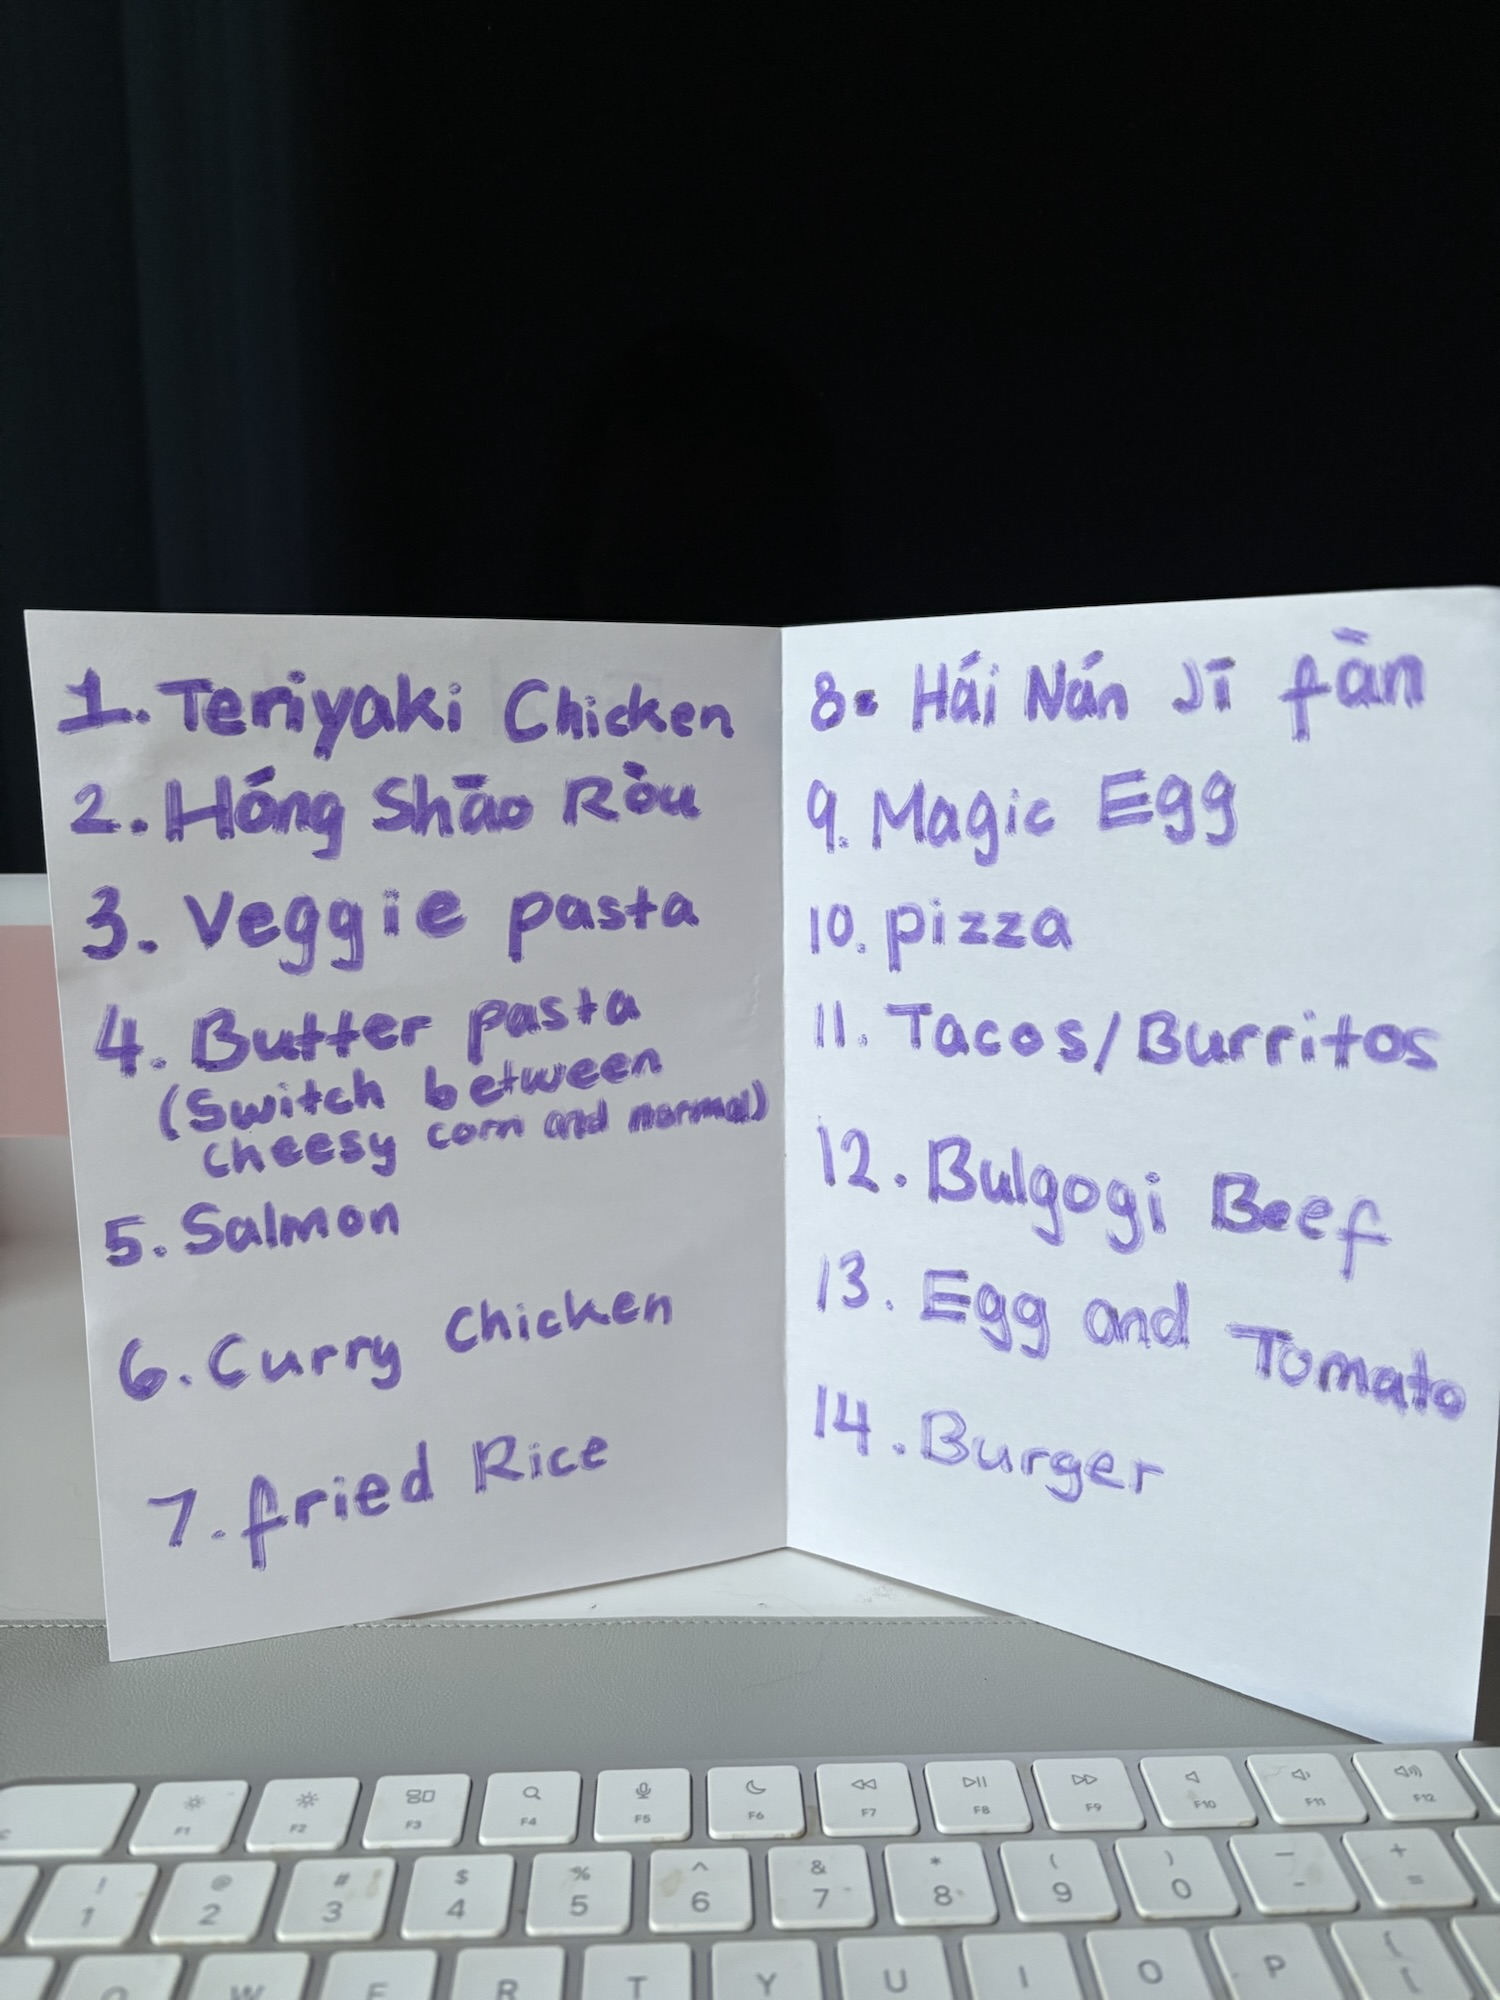 1. Teriyaki Chicken
2. Hóng Shāo Ròu
3. Veggie pasta
4. Butter pasta
(Switch between
cheesy corn and normal)
5. Salmon
6. Curry Chicken
7. fried Rice
8. Hái Nán Jī fàn
9. Magic Egg
10. pizza
11. Tacos/Burritos
12. Bulgogi Beef
13. Egg and Tomato
14. Burger
F1 F2 F3 F4 F5 F6 F7 F8 F9 F10 F11 F12
! @ # $ % ^ & * ( ) — +
1 2 3 4 5 6 7 8 9 0 - =
Q W E R T Y U I O P { [